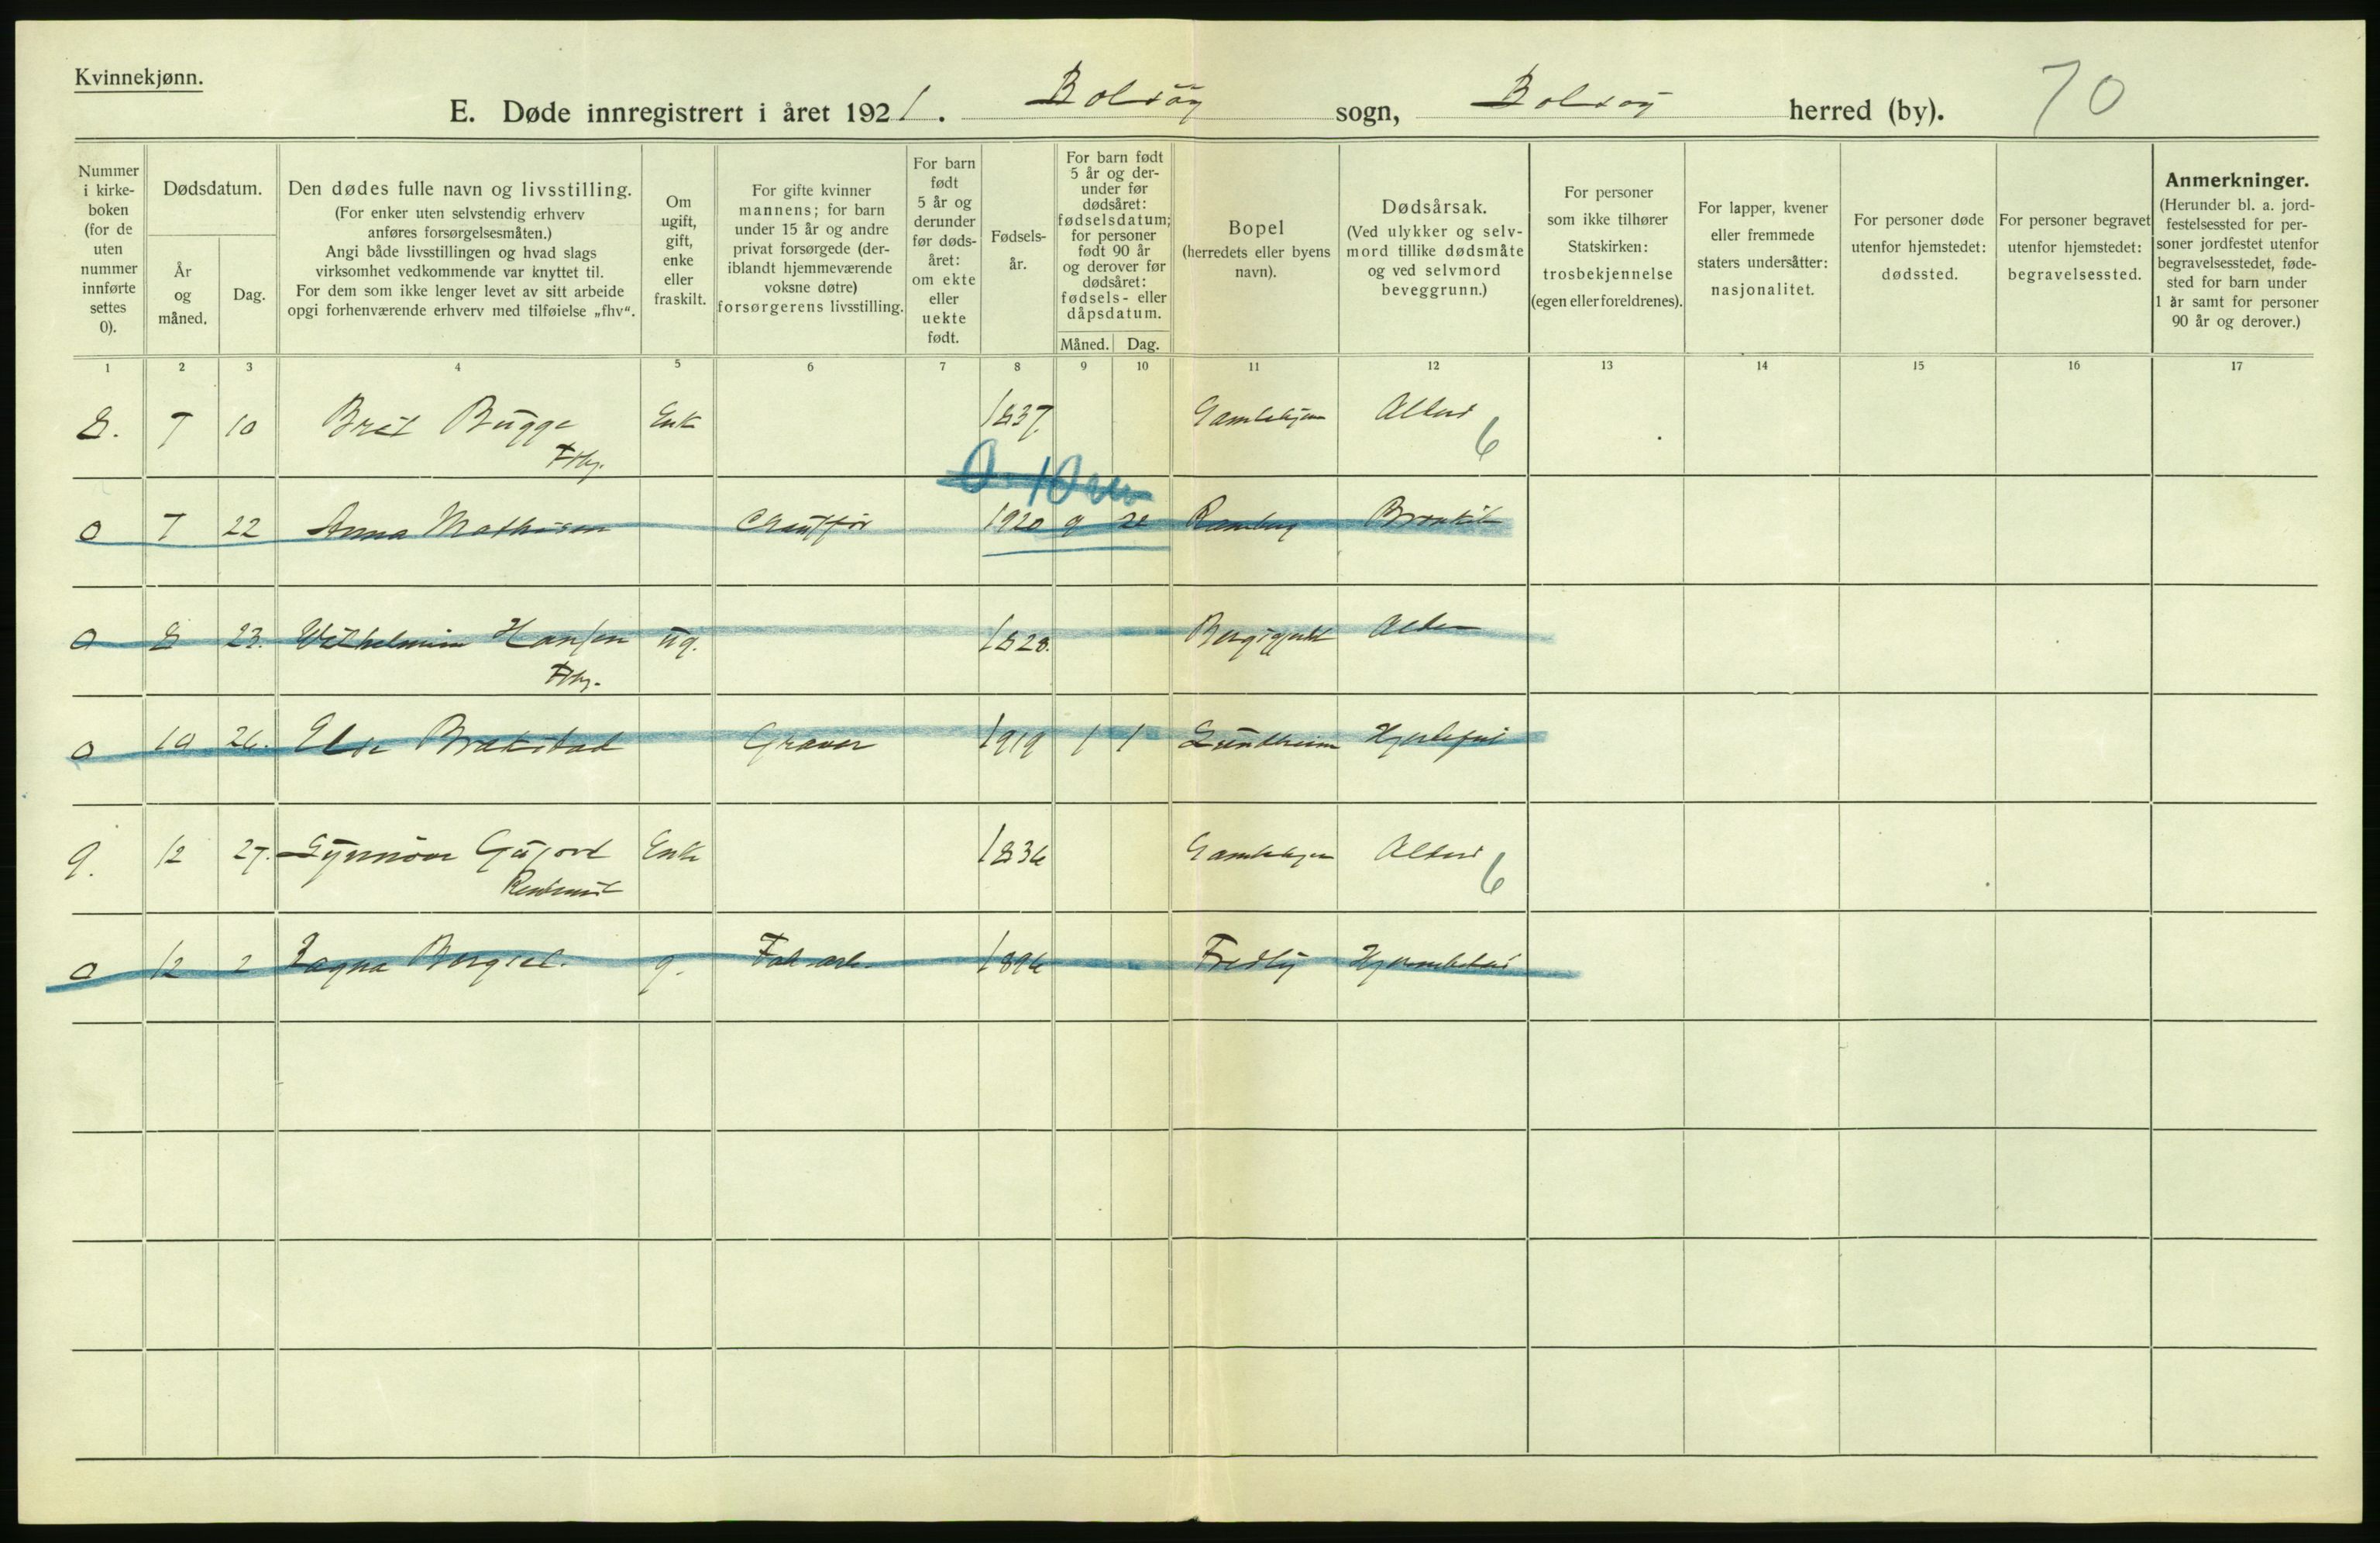 Kvinnekjønn.
E. Døde innregistrert i året 1921. Bolsøy sogn, Bolsøy herred (by). 70
Nummer i kirke-boken (for de uten nummer innførte settes 0).
Dødsdatum.
År og måned.
Dag.
Den dødes fulle navn og livsstilling.
(For enker uten selvstendig erhverv
anføres forsørgelsesmåten.)
Angi både livsstillingen og hvad slags
virksomhet vedkommende var knyttet til.
For dem som ikke lenger levet av sitt arbeide
opgi forhenværende erhverv med tilføielse „fhv“.
Om
ugift,
gift,
enke
eller
fraskilt.
For gifte kvinner
mannens; for barn
under 15 år og andre
privat forsørgede (der-
iblandt hjemmeværende
voksne døtre)
forsørgerens livsstilling.
For barn
født
5 år og
derunder
før døds-
året:
om ekte
eller
uekte
født.
Fødsels-
år.
For barn født
5 år og der-
under før
dødsåret:
fødselsdatum;
for personer
født 90 år
og derover før
dødsåret:
fødsels- eller
dåpsdatum.
Måned. Dag.
Bopel
(herredets eller byens
navn).
Dødsårsak.
(Ved ulykker og selv-
mord tillike dødsmåte
og ved selvmord
beveggrunn.)
For personer
som ikke tilhører
Statskirken:
trosbekjennelse
(egen eller foreldrenes).
For lapper, kvener
eller fremmede
staters undersåtter:
nasjonalitet.
For personer døde
utenfor hjemstedet:
dødssted.
For personer begravet
utenfor hjemstedet:
begravelsessted.
Anmerkninger.
(Herunder bl. a. jord-
festelsessted for per-
soner jordfestet utenfor
begravelsesstedet, føde-
sted for barn under
1 år samt for personer
90 år og derover.)
1 2 3 4 5 6 7 8 9 10 11 12 13 14 15 16 17
8. 7 10 Brit Bugge Enk 1837. Gamlehjem Alder 6
0 7 22 Anna Mathisen Chauffør 1920 9 Bronkit
0 8 23. Wilhelmine Hansen ug. 1828. Alder
0 10 26. Else Brakstad Graver 1919 1 1 Lundheim Hjertefeil
9. 12 27. Synnøve Gujord Enk 1836 Gamlehjem Alder 6
0 12 2 Ragna g. Fab. arb. 1896 Fredly